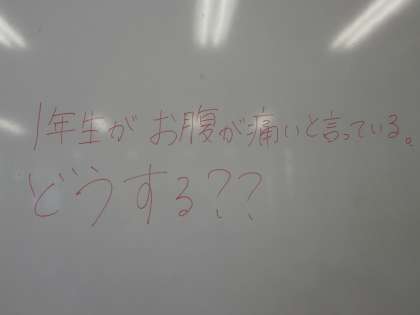 1年生がお腹が痛いと言っている。
どうする??